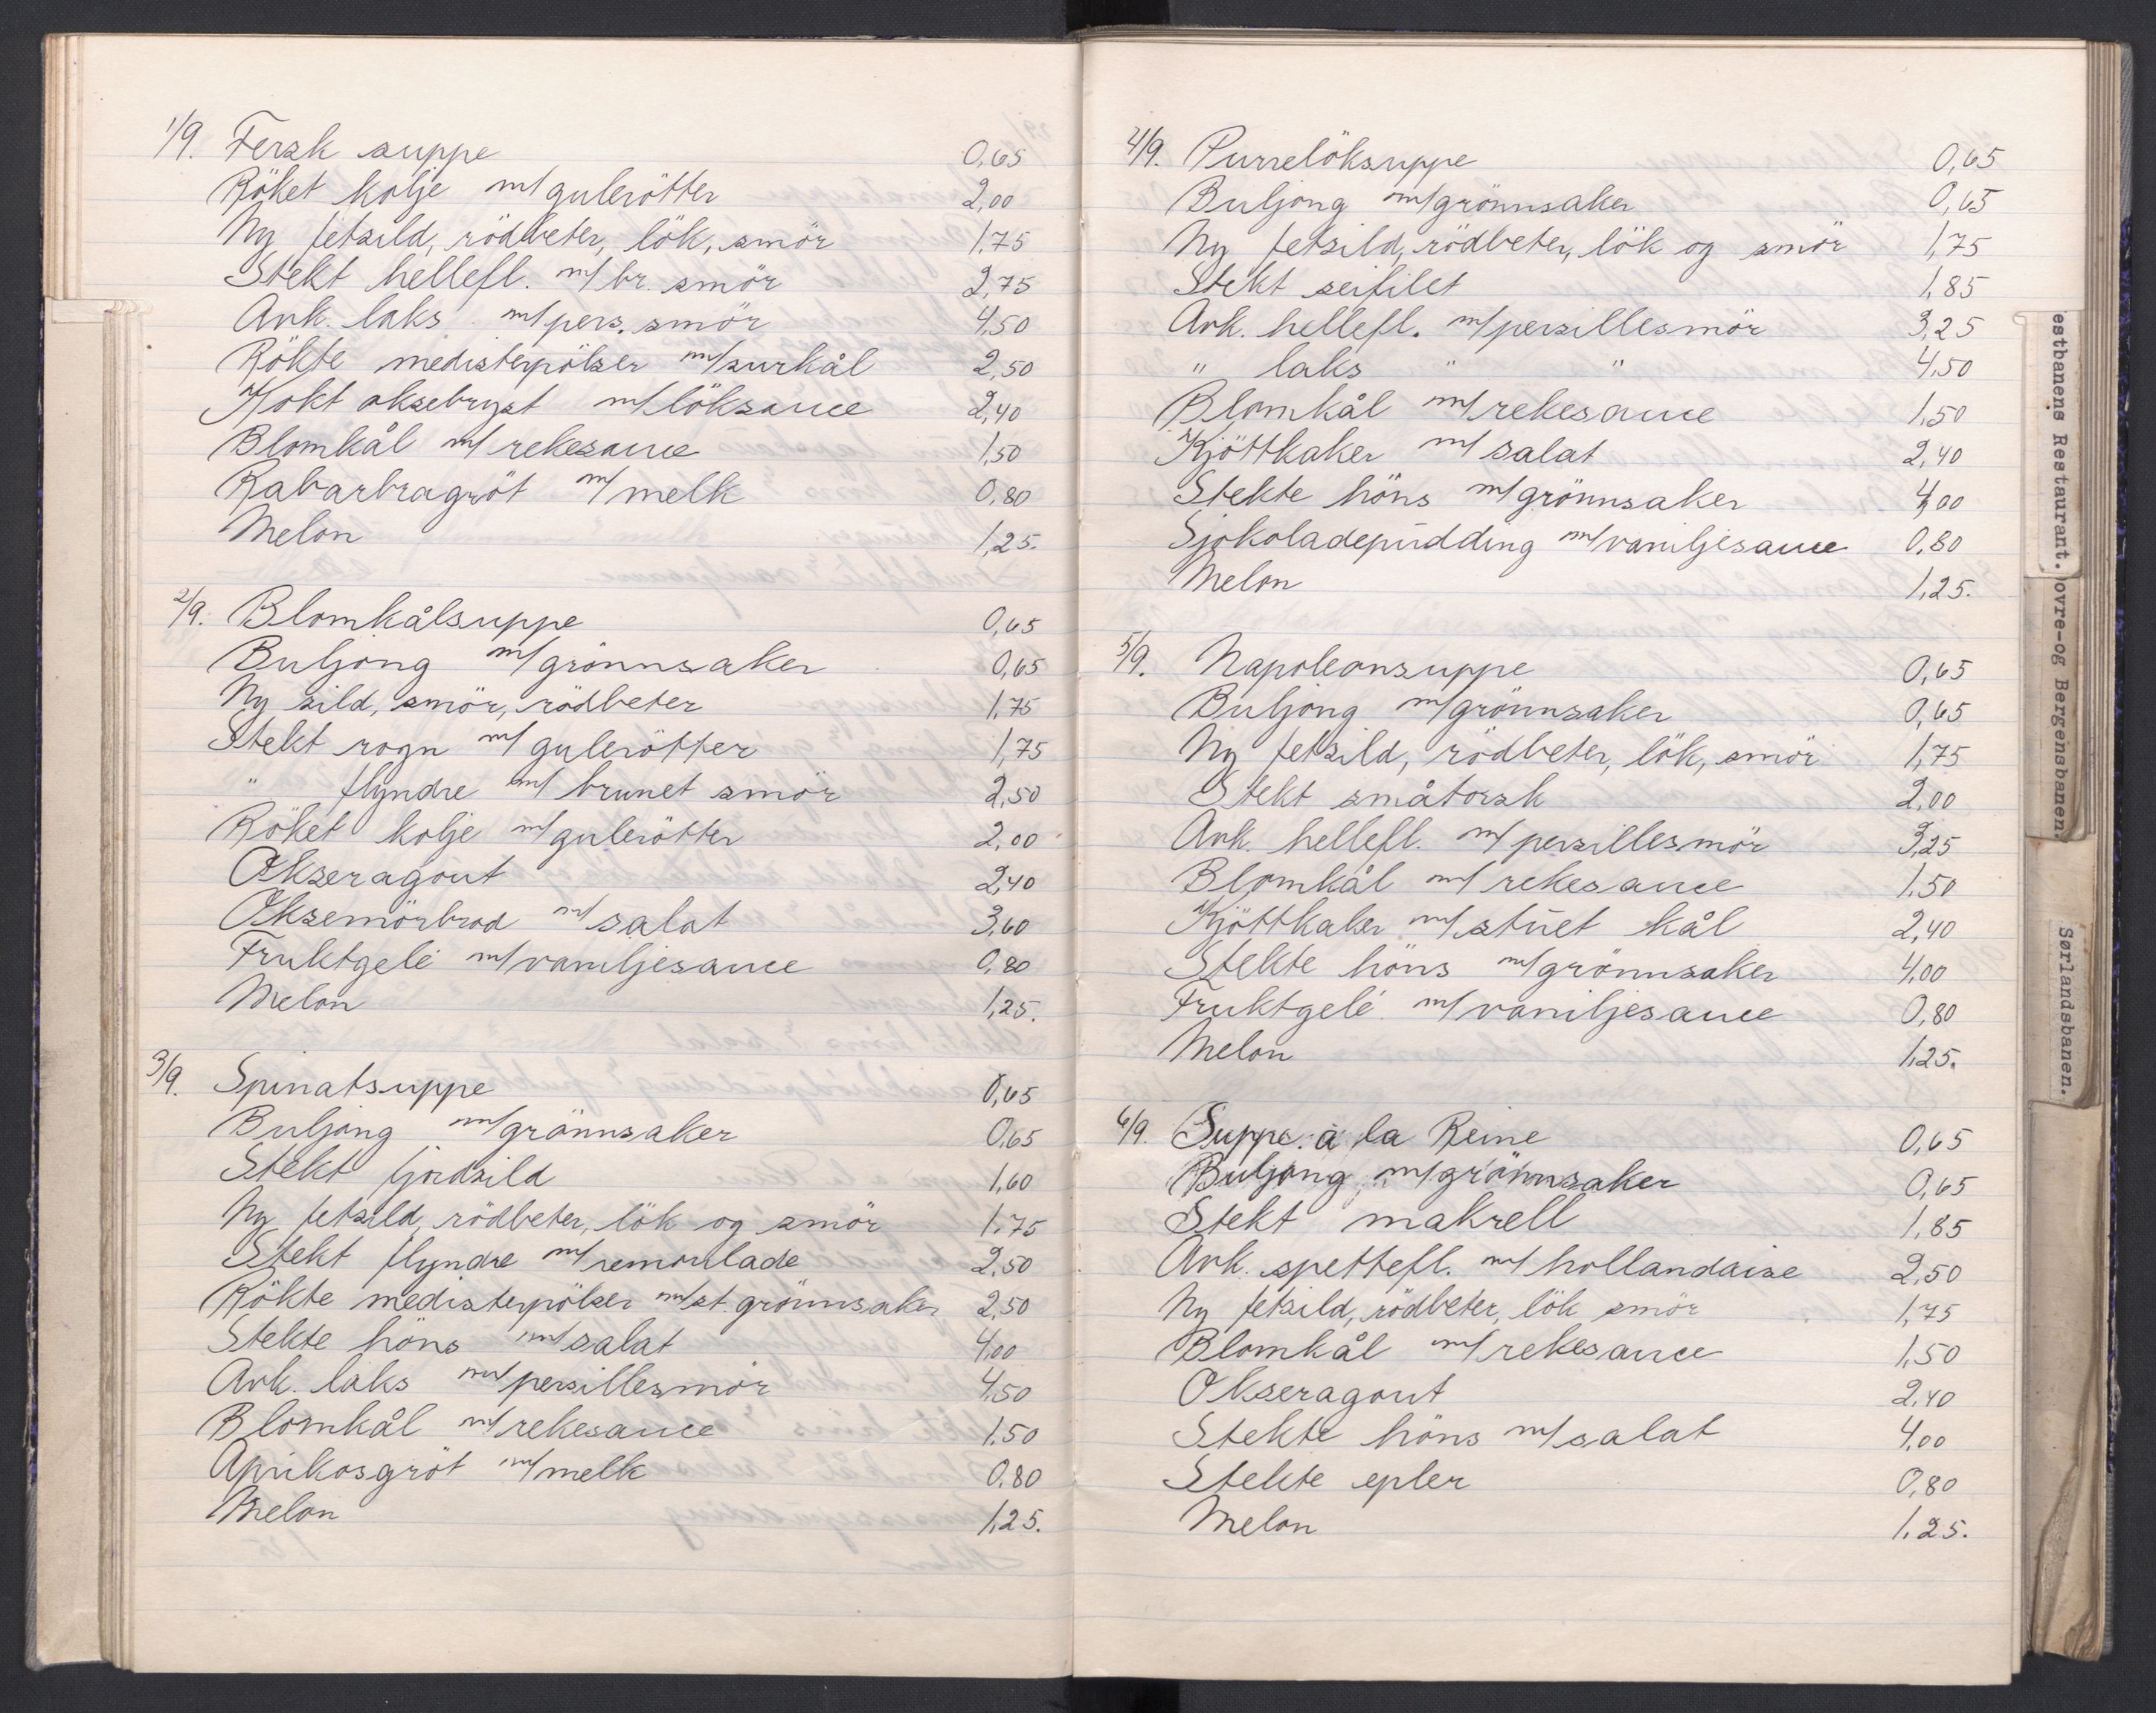 1/9. Fersk suppe 0,65
Röket kolje m/gulerötter 2,00
Ny fetsild, rödbeter, lök, smör 1,75
Stekt hellefl. m/ br. smör 2,75
Avk. laks m/pers. smör 4,50
Rökte medisterpölser m/surkål 2,50
Kokt oksebryst m/löksauce 2,40
Blomkål m/rekesauce 1,50
Rabarbragröt m/melk 0,80
Melon 1,25.
2/9. Blomkålsuppe 0,65
Buljong m/grönnsaker 0,65
Ny sild, smör, rödbeter 1,75
Stekt rogn m/gulerötter 1,75
" flyndre m/ brunet smör 2,50
Röket kolje m/gulerötter 2,00
Okseragout 2,40
Oksemörbrad m/salat 3,60
Fruktgelé m/vaniljesauce 0,80
Melon 1,25.
3/9. Spinatsuppe 0,65
Buljong m/grönnsaker 0,65
Stekt fjordsild 1,60
Ny fetsild, rödbeter, lök og smör 1,75
Stekt flyndre m/remoulade 2,50
Rökte medisterpölser m/st. grönnsaker 2,50
Stekte höns m/salat 4,00
Avk. laks m/persillesmör 4,50
Blomkål m/rekesauce 1,50
Aprikosgröt m/melk 0,80
Melon 1,25.
4/9. Purrelöksuppe 0,65
Buljong m/grönnsaker 0,65
Ny fetsild, rödbeter, lök og smör 1,75
Stekt seifilet 1,85
Avk. hellefl. m/persillesmör 3,25
" laks " " 4,50
Blomkål m/rekesauce 1,50
Kjöttkaker m/salat 2,40
Stekte höns m/grönnsaker 4,00
Sjokoladepudding m/vaniljesauce 0,80
Melon 1,25.
5/9. Napoleonsuppe 0,65
Buljong m/grönnsaker 0,65
Ny fetsild, rödbeter, lök, smör 1,75
Stekt småtorsk 2,00
Avk. hellefl. m/persillesmör 3,25
Blomkål m/rekesauce 1,50
Kjöttkaker m/stuet kål 2,40
Stekte höns m/grönnsaker 4,00
Fruktgelé m/vaniljesauce 0,80
Melon 1,25.
6/9. Suppe à la Reine 0,65
Buljong m/grönnsaker 0,65
Stekt makrell 1,85
Avk. spettefl. m/hollandaise 2,50
Ny fetsild, rödbeter, lök smör 1,75
Blomkål m/rekesauce 1,50
Okseragout 2,40
Stekte höns m/salat 4,00
Stekte epler 0,80
Melon 1,25.
estbanens Restaurant.
ovre-og Bergensbanen.
Sørlandsbanen.